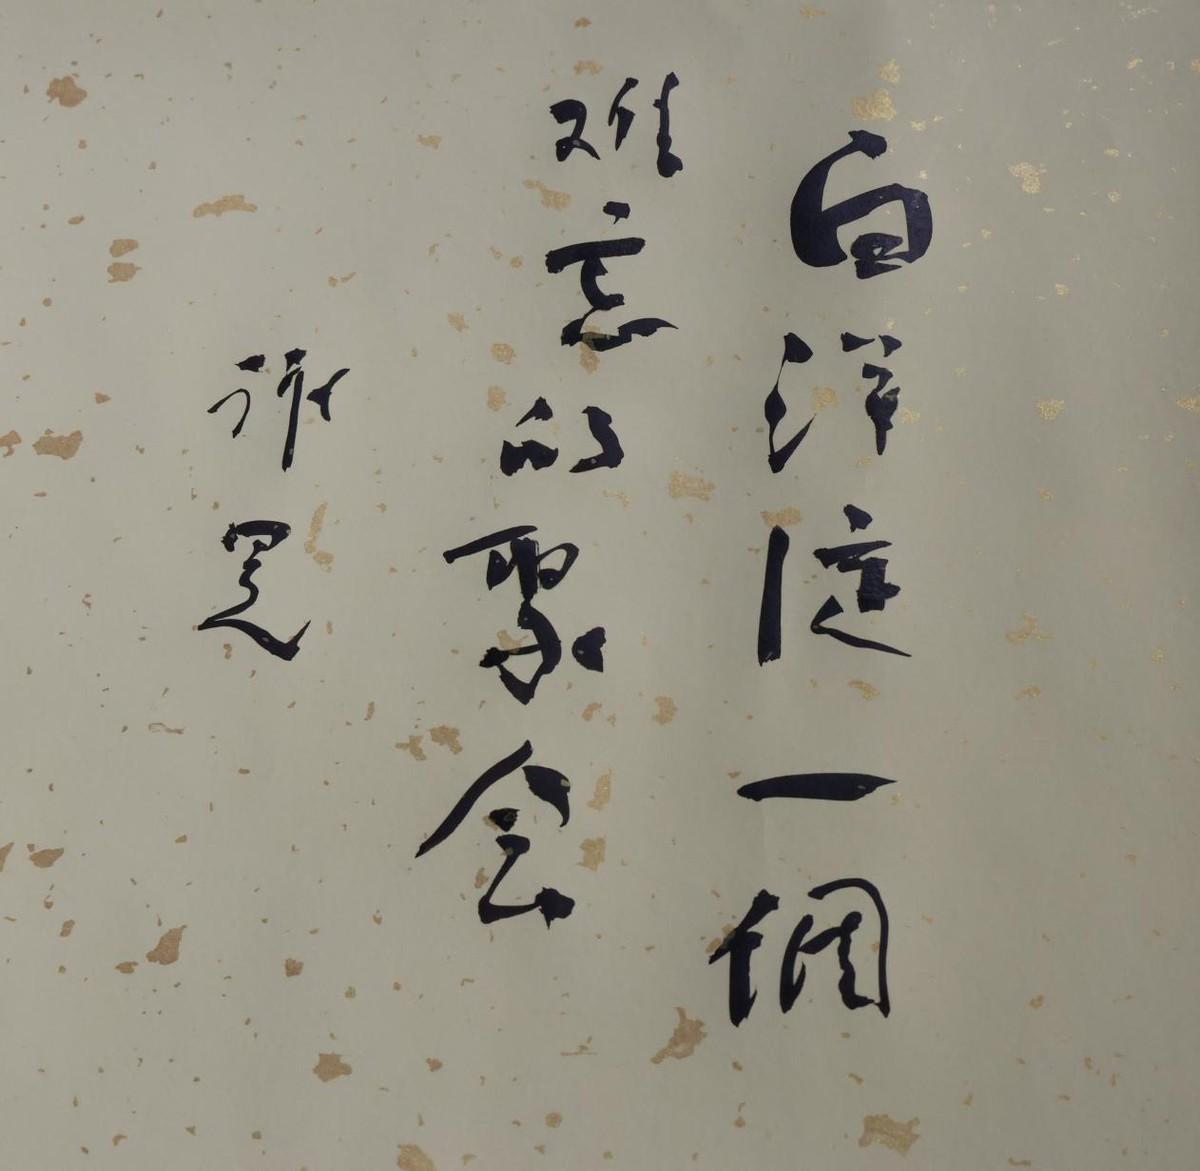 白洋淀一個
难忘的聚会